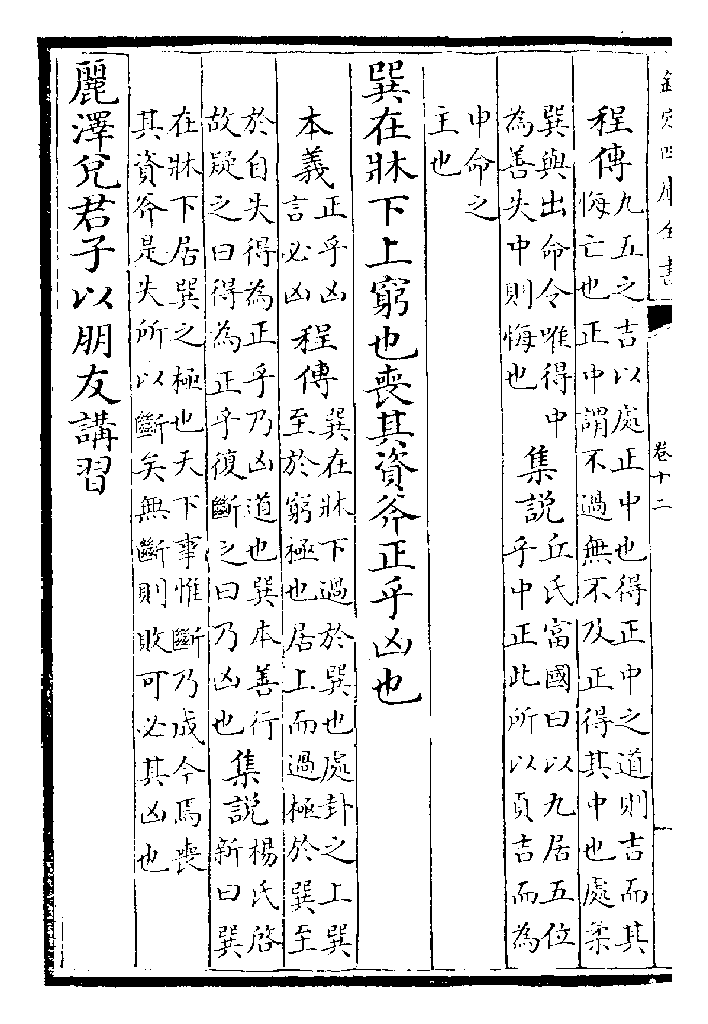 欽定四庫全書 卷十二
程傳九五之吉以處正中也得正中之道則吉而其
悔亡也正中謂不過無不及正得其中也處柔
巽與出命令唯得中
為善失中則悔也
集説丘氏富國曰以九居五位
乎中正此所以貞吉而為
申命之
主也
巽在牀下上窮也喪其資斧正乎凶也
本義正乎凶
言必凶
程傳巽在牀下過於巽也處卦之上巽
至於窮極也居上而過極於巽至
於自失得為正乎乃凶道也巽本善行
故疑之曰得為正乎復斷之曰乃凶也
集説楊氏啓
新曰巽
在牀下居巽之極也天下事惟斷乃成今焉喪
其資斧是失所以斷矣無斷則敗可必其凶也
麗澤兌君子以朋友講習